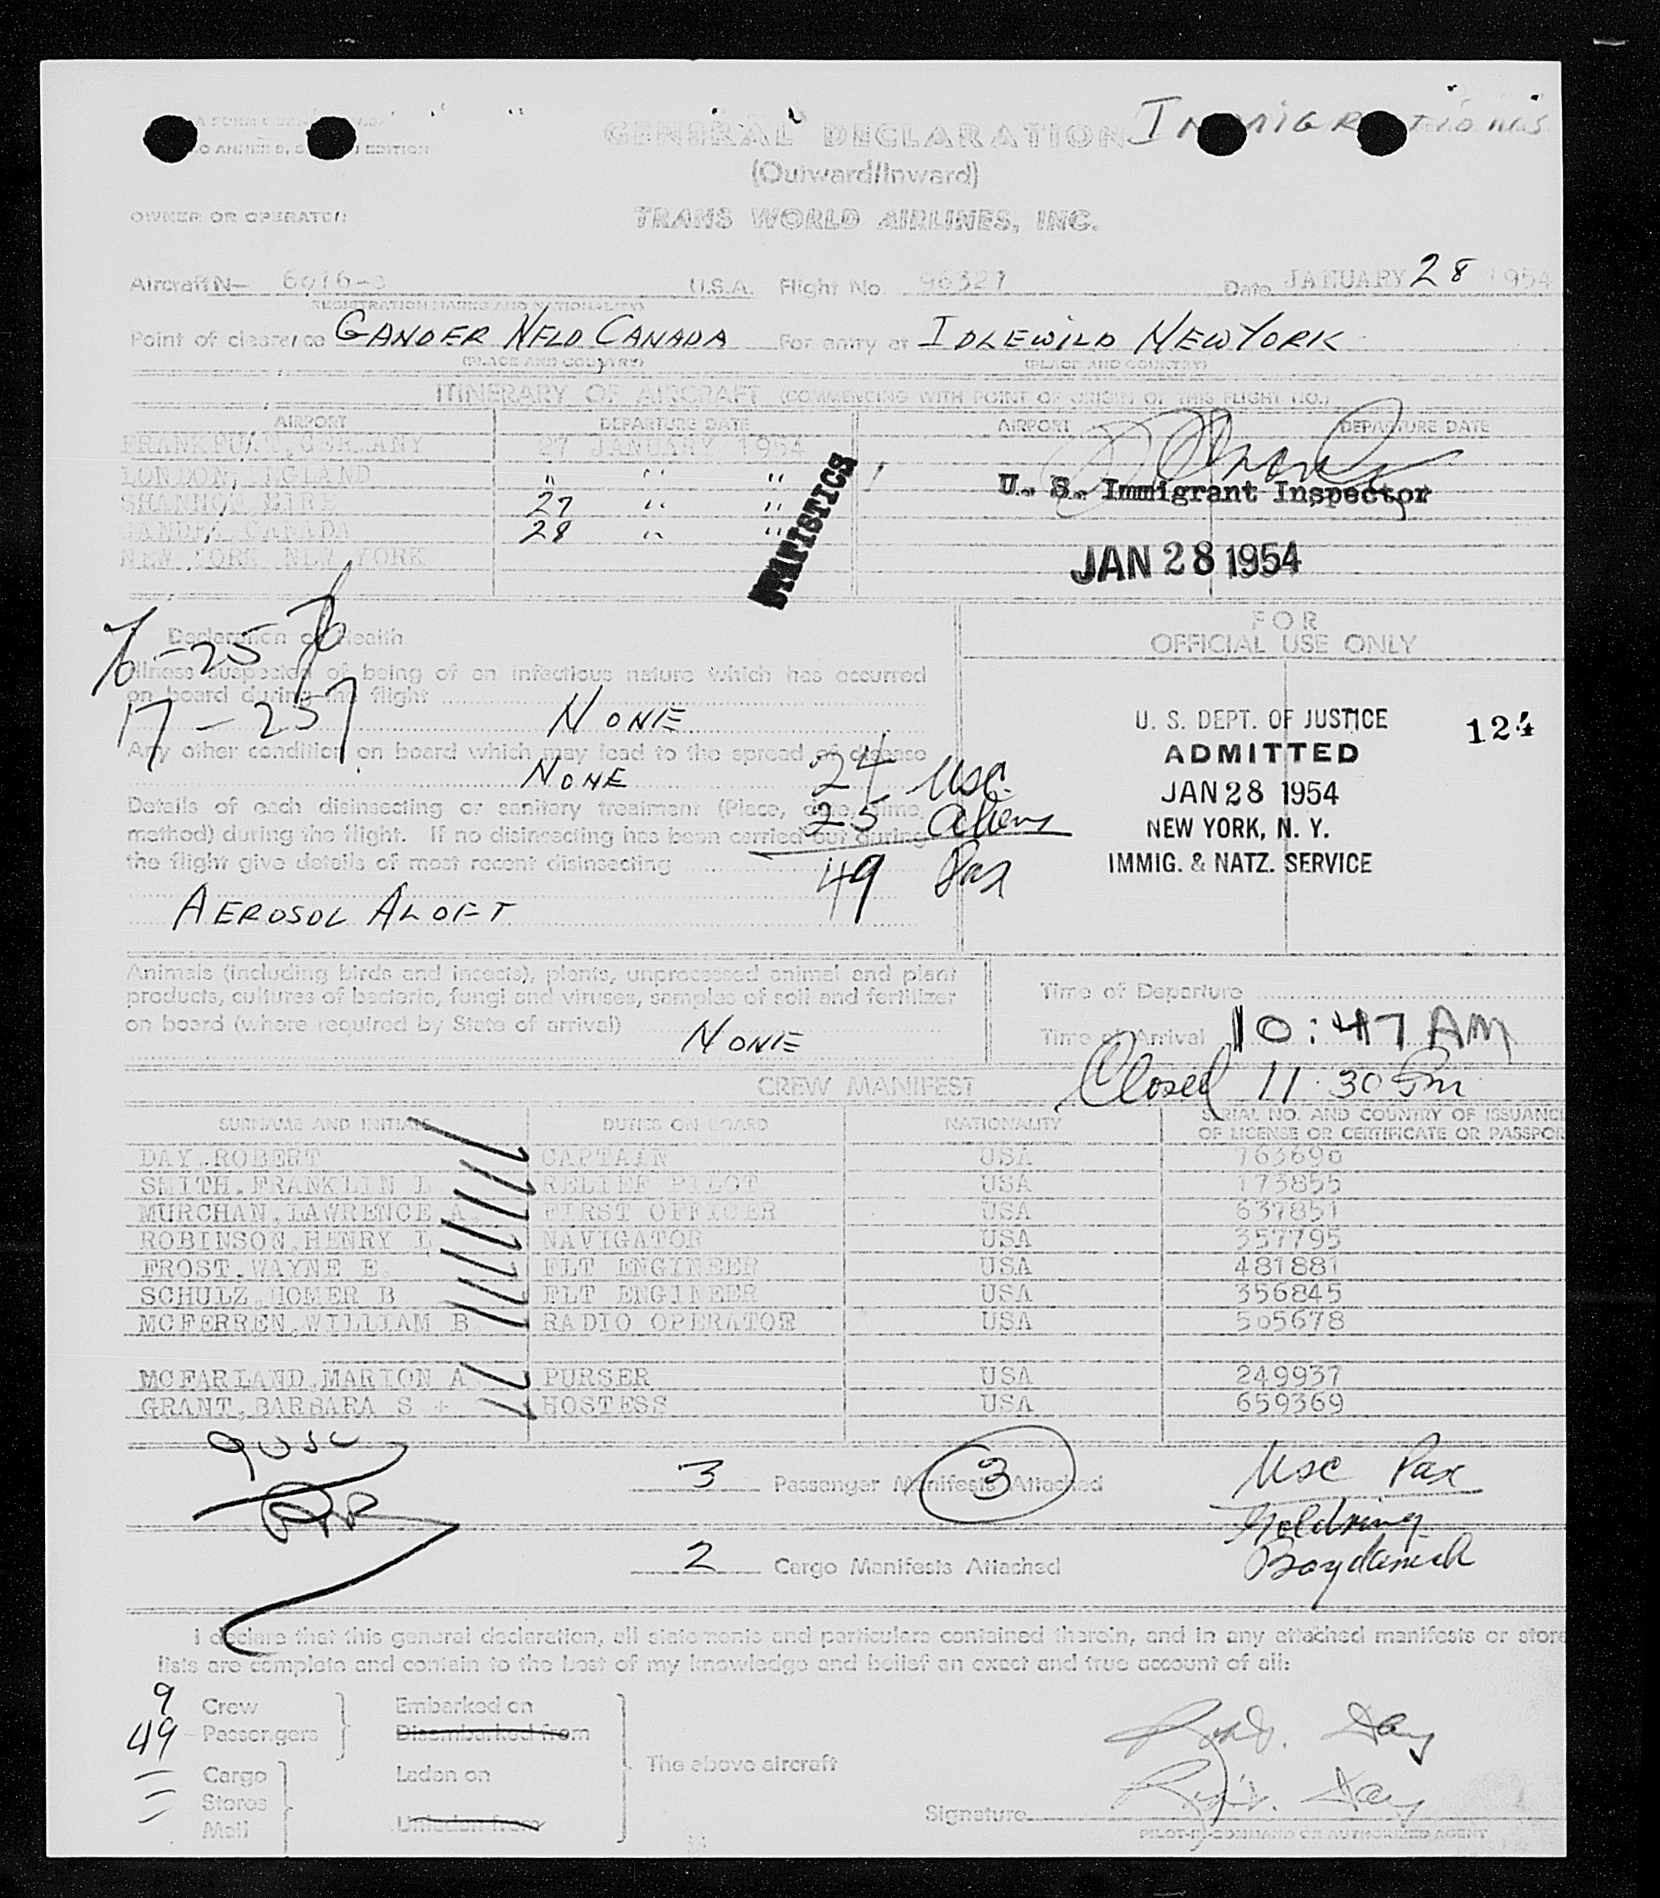 GENERAL DECLARATION
IMMIGRATION
(Outward/Inward)
OWNER OR OPERATOR
TRANS WORLD AIRLINES, INC.
Aircraft N— U.S.A. Flight No Date JANUARY 28 1954
REGISTRATION MARKS AND NATIONALITY)
Point of clearance GANDER NFLD CANADA For entry at IDLEWILD NEW YORK
(PLACE AND COUNTRY) (PLACE AND COUNTRY)
ITINERARY OF AIRCRAFT (COMMENCING WITH POINT OF ORIGIN OF THIS FLIGHT NO.)
AIRPORT DEPARTURE DATE AIRPORT DEPARTURE DATE
FRANKFURT, GERMANY 27 JANUARY 1954
LONDON, ENGLAND " " "
SHANNON EIRE 27 " "
GANDER, CANADA 28 " "
NEW YORK NEW YORK
STATISTICS
U. S. Immigrant Inspector
JAN 28 1954
FOR
OFFICIAL USE ONLY
Declaration of Health
Illness suspected of being of an infectious nature which has occurred
on board during the flight
NONE
Any other condition on board which may lead to the spread of disease
NONE
Details of each disinsecting or sanitary treatment (Place, date, time,
method) during the flight. If no disinsecting has been carried out during
the flight give details of most recent disinsecting
AEROSOL ALOFT
24 USC
25 Aliens
49 Pax
U. S. DEPT. OF JUSTICE
ADMITTED
JAN 28 1954
NEW YORK, N. Y.
IMMIG. & NATZ. SERVICE
124
Animals (including birds and insects), plants, unprocessed animal and plant
products, cultures of bacteria, fungi and viruses, samples of soil and fertilizer
on board (where required by State of arrival)
NONE
Time of Departure
Time of Arrival 10:47 AM
Closed 11:30 Pm
CREW MANIFEST
SURNAME AND INITIALS DUTIES ON BOARD NATIONALITY SERIAL NO. AND COUNTRY OF ISSUANC
OF LICENSE OR CERTIFICATE OR PASSPOR
DAY, ROBERT CAPTAIN USA 763696
SMITH, FRANKLIN L RELIEF PILOT USA 173855
MURCHAN, LAWRENCE A FIRST OFFICER USA 637851
ROBINSON, HENRY L NAVIGATOR USA 357795
FROST, WAYNE E. FLT ENGINEER USA 481881
SCHULZ, HOMER B FLT ENGINEER USA 356845
MCFERREN, WILLIAM B RADIO OPERATOR USA 505678
MCFARLAND, MARION A PURSER USA 249937
GRANT, BARBARA S + HOSTESS USA 659369
9 USC
3 Passenger Manifests Attached
3
USC Pax
Goldring
2 Cargo Manifests Attached
I declare that this general declaration, all statements and particulars contained therein, and in any attached manifests or store
lists are complete and contain to the best of my knowledge and belief an exact and true account of all:
9 Crew Embarked on
49 Passengers Disembarked from
The above aircraft
Cargo Laden on
Stores
Mail Unladen from
Robt. Day
Robt. Day
Signature
PILOT-IN-COMMAND OR AUTHORIZED AGENT